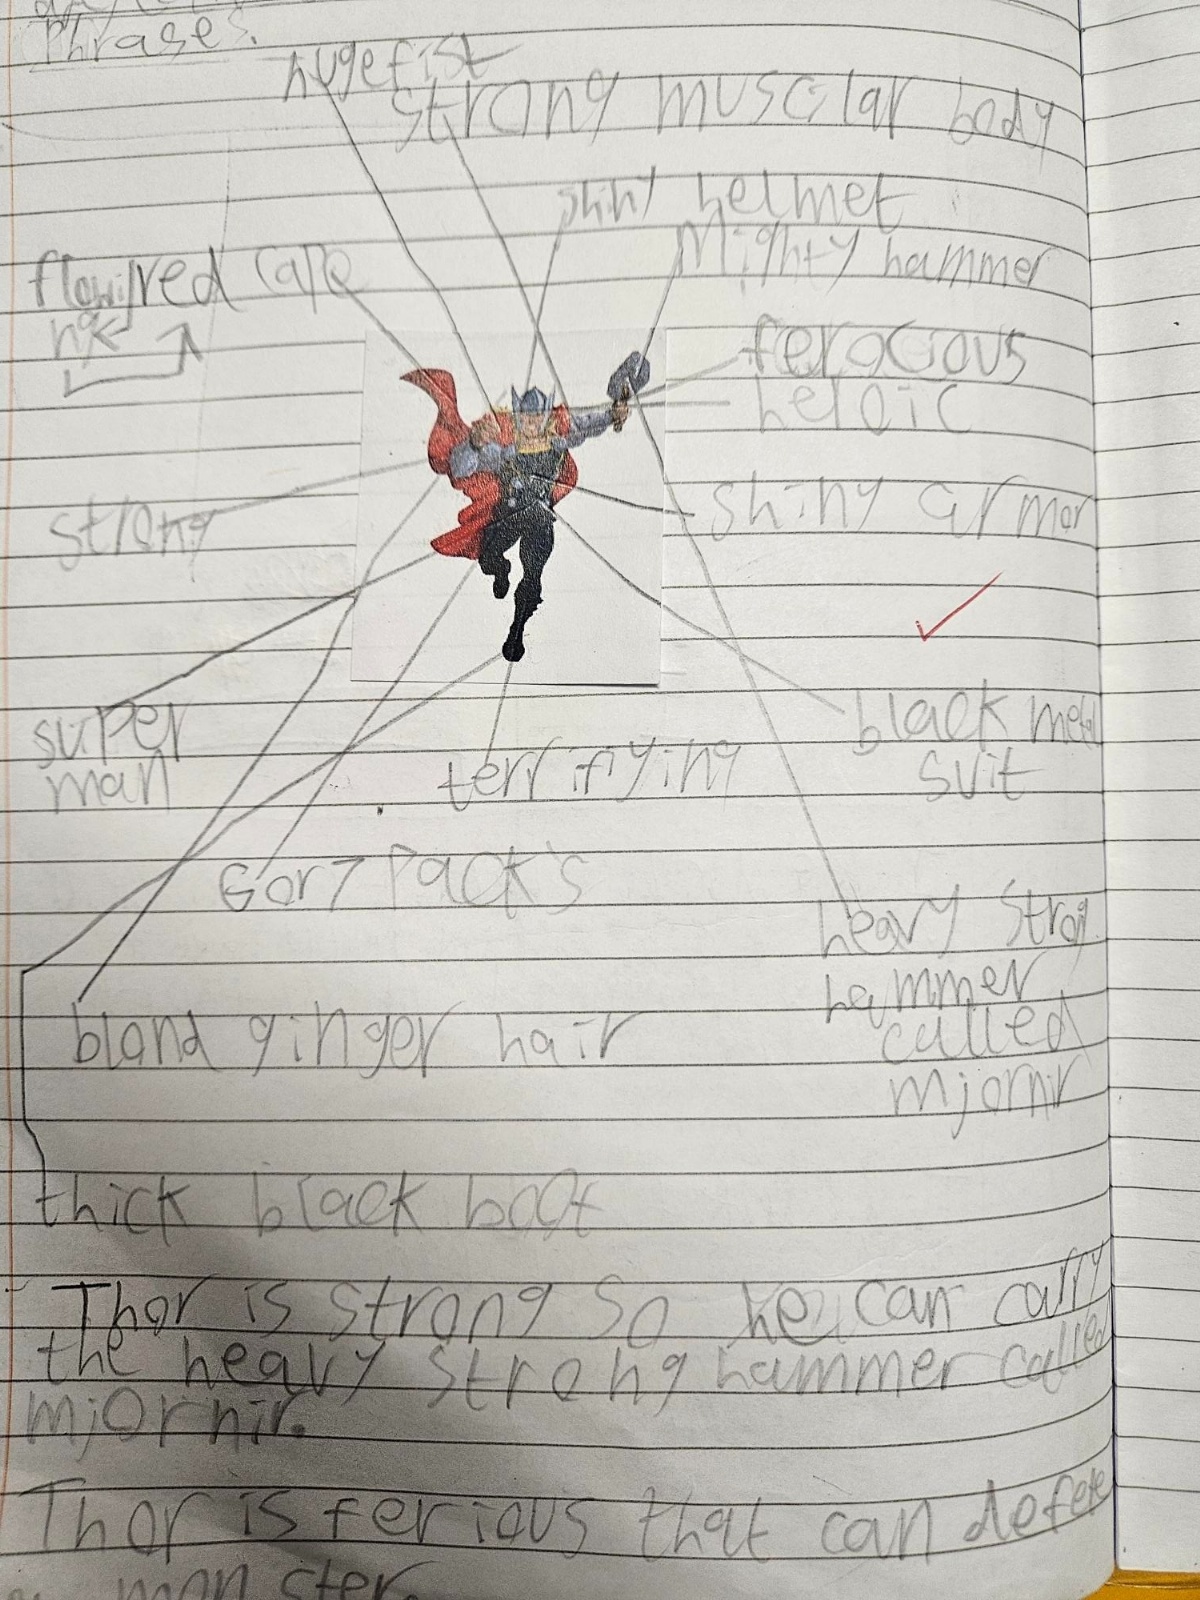 Phrases.
huge fist
strong muscular body
shiny helmet
Mighty hammer
flowi red cape
ng
ferocious
heroic
shiny armor
strong
super
man
black metal
suit
terrifying
6 or 7 Pack's
heavy strong
hammer
called
mjornir
blond ginger hair
thick black boot
Thor is strong so he can carry
the heavy strong hammer called
mjornir.
Thor is ferious that can defete
monster.